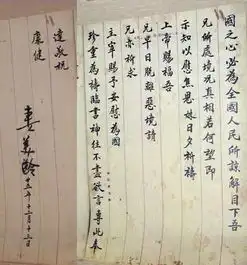 國之心必為全國人民所諒解目下吾
兄所處境况真相若何望即
示知以慰焦思妹日夕祈禱
上帝賜福吾
兄早日脱離惡境請
兄亦祈求
主宰賜予安慰為國
珍重為禱臨書神往不盡欲言專此奉
達敬祝
康健
美齡
十二月十二日